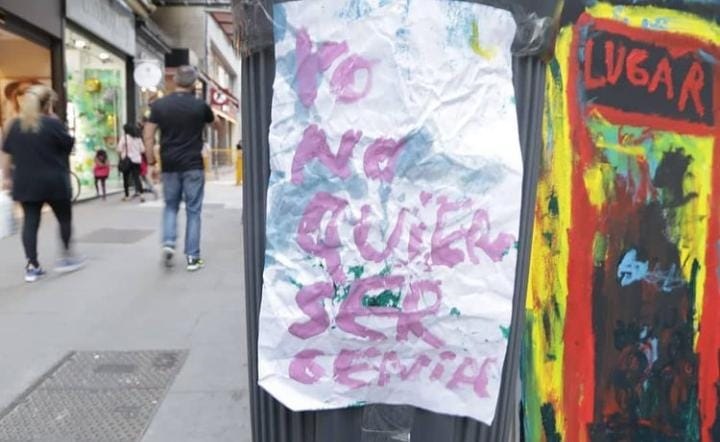 YO
NO
QUIER
SER
GENIA
LUGAR